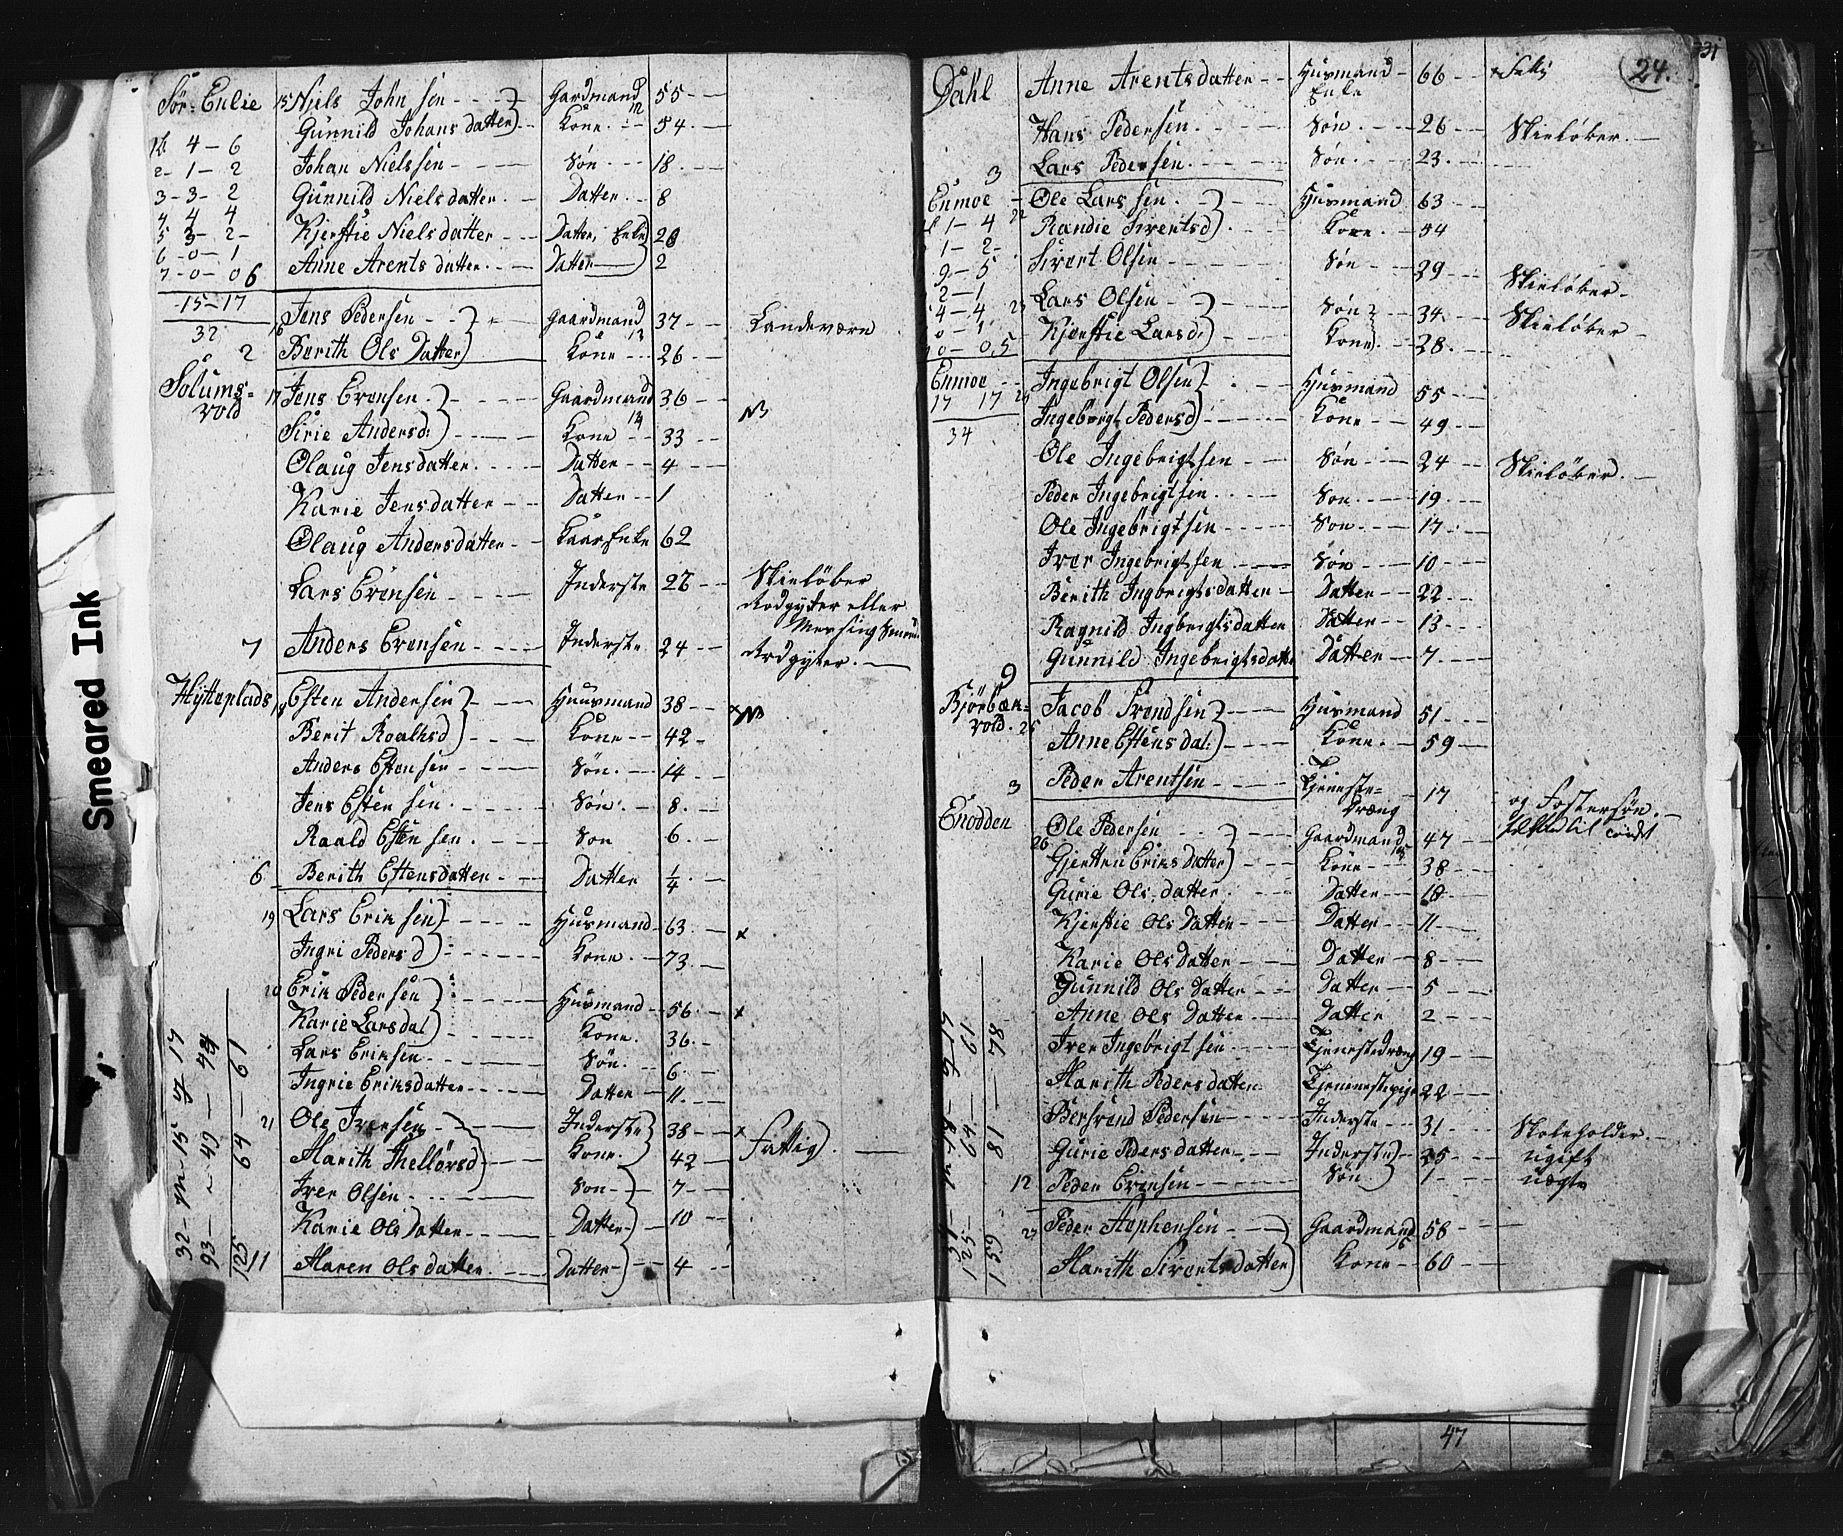 Sør-Enlie 15 Niels Johnsen Gardmand 55
Gunnild Johansdatter Kone 12 54
4 - 6 Johan Nielssen Søn 18
2 - 1 - 2 Gunnild Nielsdatter Datter 8
3 - 3 - 2
4 4 4 Kjerstie Nielsdatter Datter, Enke
5 3 - 2 -
6 - 0 - 1 Anne Arentsdatter Datter 2
7 - 0 - 0 6
15 - 17 16 Jens Pedersen Gaardmand 37 Landeværn
32 2 Berith Olsdatter Kone 13 26
Solumsvold 17 Jens Erensen Gaardmand 36 NB
Sirie Andersd: Kone 14 33
Olaug Jensdatter Datter 4
Karie Jensdatter Datter 1
Olaug Andersdatter Kaar Enke 62
Lars Erensen Inderste 26 Skieløber
Rodgyter eller
Messing
7 Anders Erensen Inderste 24 Rodgyter
Hytteplads 18 Esten Andersen Huusmand 38 x NB
Berit Roaldsd Kone 42
Anders Estensen Søn 14
Jens Estensen Søn 8
Roald Estensen Søn 6
6 Berith Estensdatter Datter 1/4
19 Lars Eriksen Husmand 63 x
Ingri Pedersd Kone 73
20 Erik Pedersen Husmand 56 x
Karie Larsdat Kone 36
Lars Eriksen Søn 6
Ingrie Eriksdatter Datter 11
21 Ole Iversen Inderste 38 x Fattig
Marith Kone 42
Iver Olsen Søn 7
Karie Olsdatter Datter 10
11 Maren Olsdatter Datter 4
32 - M - 15 17
93 - 49 - 44
125 64 - 61
24.
331
Dahl Anne Arentsdatter Husmand Enke 66
Hans Pedersen Søn 26 Skieløber
3 Lars Pedersen Søn 23
Enmoe 22 Ole Larssen Husmand 63
1 - 4 Randie Sivertsd Kone 54
1 - 2 Sivert Olsen Søn 29 Skieløber
9 - 5
2 - 1 Lars Olsen Søn 34 Skieløber
4 - 4 23
0 - 1 Kjerstie Larsd: Kone 28
0 - 0 5
Enmoe Ingebrigt Olsen Husmand 55
17 17 24 Ingeborg Pedersd Kone 49
34
Ole Ingebrigtsen Søn 24 Skieløber
Peder Ingebrigtsen Søn 19
Ole Ingebrigtsen Søn 17
Iver Ingebrigtsen Søn 10
Berith Ingbrigtsdatter Datter 22
Ragnild Ingbrigtsdatter Datter 13
9 Gunnild Ingebrigtsdatter Datter 7
Bjørbækvold 25 Jacob Trondsen Husmand 51
Anne Estensdat: Kone 59
3 Peder Arentsen Tjenestedræng 17 og Fostersøn
Enodden 26 Ole Pedersen Gaardmand 47
Gjertru Eriksdatter Kone 38
Gurie Olsdatter Datter
Kjerstie Olsdatter Datter 11
Karie Olsdatter Datter 8
Gunnild Olsdatter Datter 5
Anne Olsdatter Datter 2
Iver Ingebrigtsen Tjenestedræng 19
Marith Pedersdatter Tjennestepige 22
Bersvend Pedersen Inderste 31 Skoleholder
Gurie Pedersdatter Inderste 25 ugift
12 Peder Erensen Søn 1 uægte
27 Peder Stephensen Gaardmand 58
Marith Sivertsdatter Kone 60
125 - 64 - 61
159 - 81 - 78
47
Smeared Ink